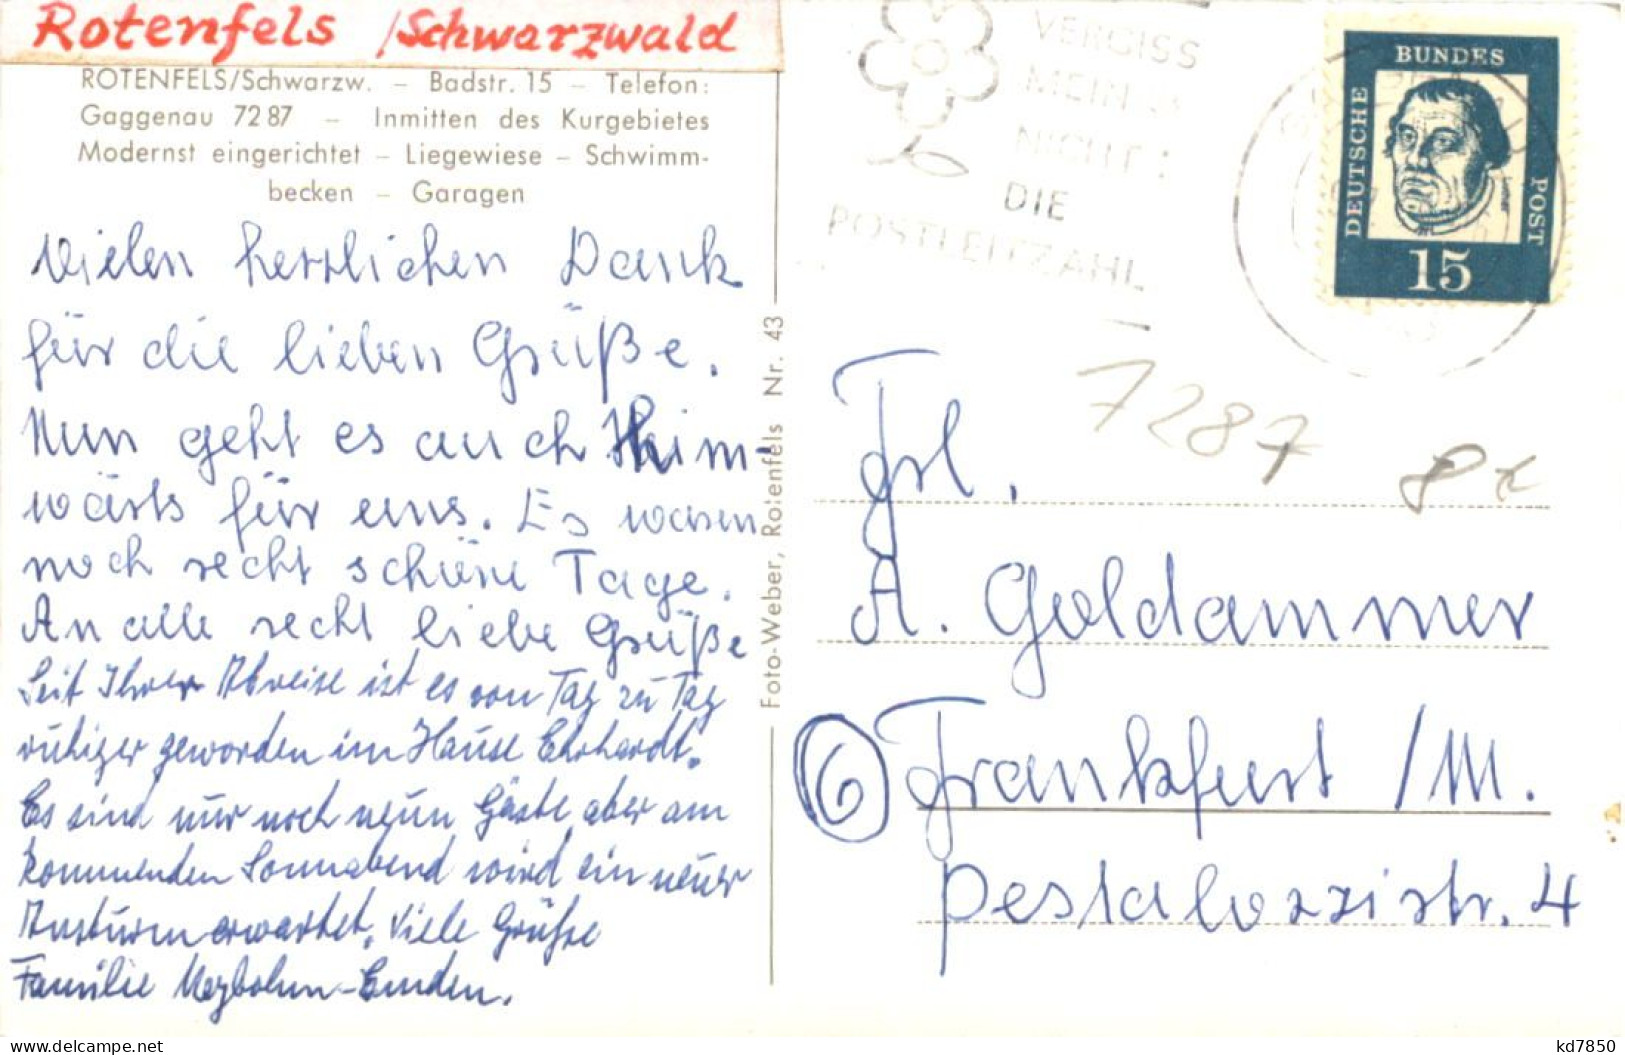 Rotenfels /Schwarzwald
ROTENFELS/Schwarzw. – Badstr. 15 – Telefon:
Gaggenau 72 87 – Inmitten des Kurgebietes
Modernst eingerichtet – Liegewiese – Schwimm-
becken – Garagen
Vielen herzlichen Dank
für die lieben Grüße.
Nun geht es auch Heim-
wärts für uns. Es waren
noch recht schöne Tage.
An alle recht liebe Grüße
Seit Ihrer Abreise ist es von Tag zu Tag
ruhiger geworden im Hause Ehrhardt.
Es sind nur noch neun Gäste, aber am
kommenden Sonnabend wird ein neuer
Ansturm erwartet. Viele Grüße
Familie Meybohm-Emden.
Foto-Weber, Rotenfels Nr. 43
VERGISS
MEIN
NICHT:
DIE
POSTLEITZAHL
DEUTSCHE
BUNDES
POST
15
7287
Frl.
A. Goldammer
6 Frankfurt /M.
Pestalozzistr. 4
www.delcampe.net
kd7850